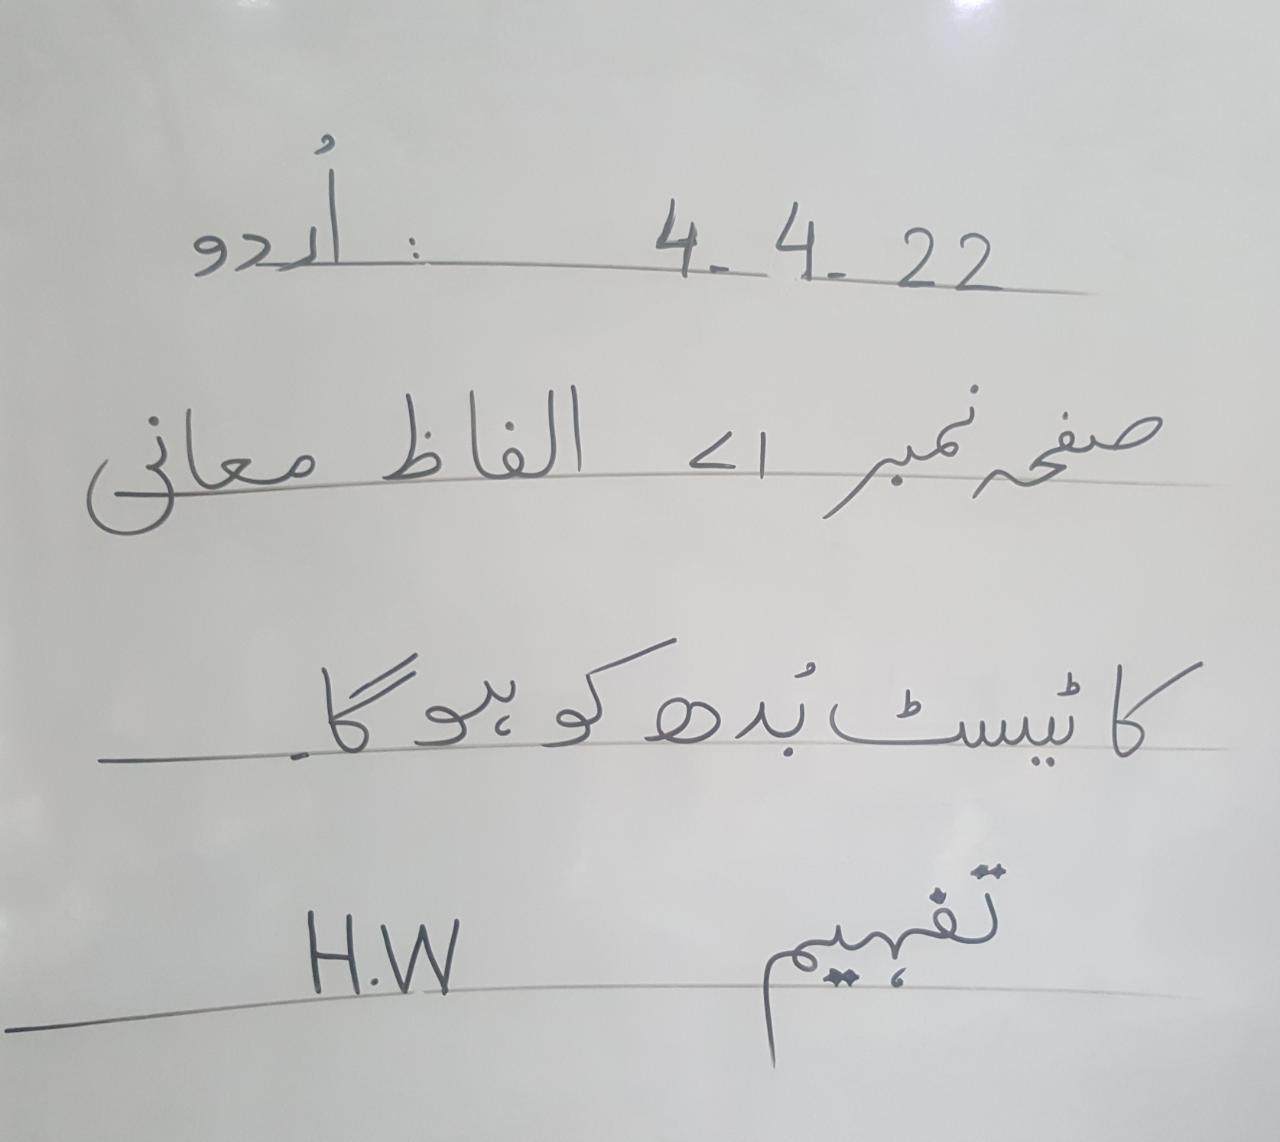 4.4.22 : اُردو
صفحہ نمبر ۷۱ الفاظ معانی
کا ٹیسٹ بُدھ کو ہو گا۔
تفہیم H.W